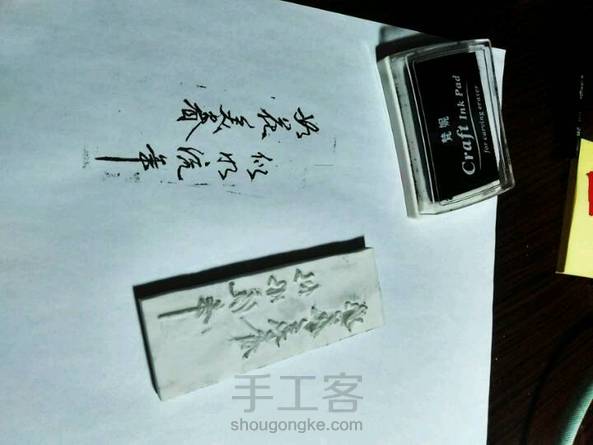 如花美眷
似水流年
Craft Ink Pad
for carving eraser
手工客
shougongke.com